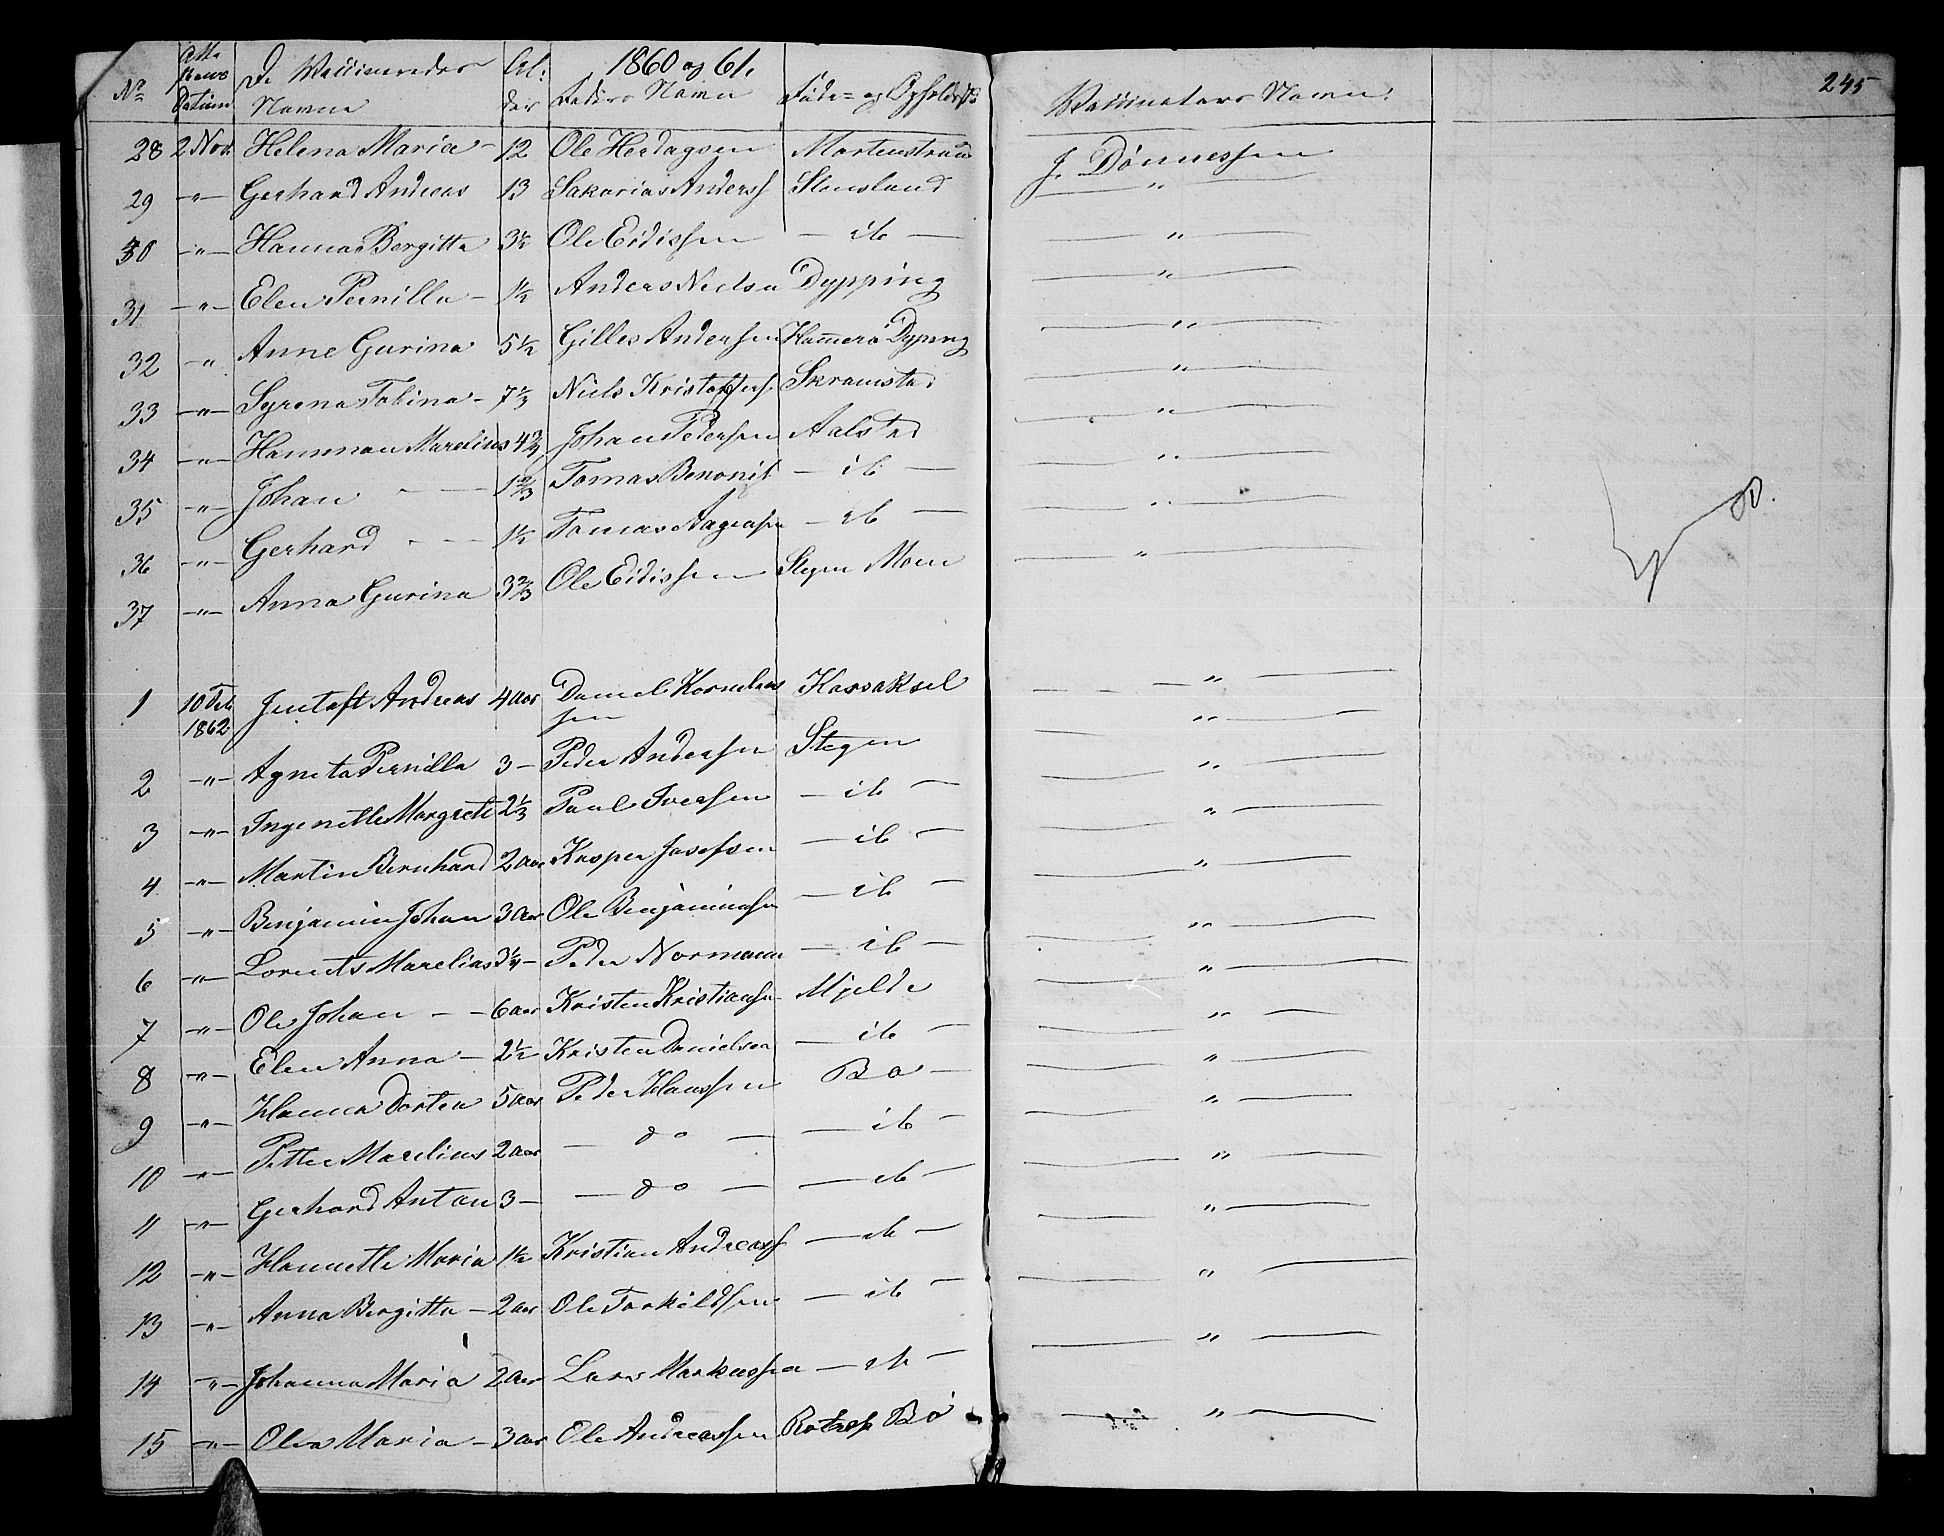 1860 og 61.
245
No Datum De Navne Al: der Fadres Navn Føde= og Vaccinators Navn:
28 2 Nov. Helena Maria - 12 Ole Herdagsen J. Dønnessen
29 -"- Gerhard Andreas 13 Sakarias Anderss Stensland "
30 -"- Hanna Bergitta 3½ Ole Eidissen - ib - "
31 -"- Elen Pernilla - 1½ Anders Nielsen Dypping "
32 -"- Anne Gurina 5½ Gilles Andersen Hamerø Dyping "
33 -"- Syrena Tobina - 7⅓ Niels Kristoffers Skramstad "
34 -"- Hanman Marelius 4¾ Johan Pedersen Aalstad "
35 -"- Johan 1⅔ Tomas Benonis - ib - "
36 -"- Gerhard 1½ Tomas - ib - "
37 -"- Anna Gurina 3⅔ Ole Eidissen Stegen Moen "
1 10 Feb. 1862 Andreas 4 aar Daniel Kornelius
sen Karsaksel "
2 -"- Agneta Pernilla 3 - Peder Andersen Stegen "
3 -"- Ingenette Margrete 2⅓ Paul Iversen - ib - "
4 -"- Martin Bernhard 2 aar Kasper Josefsen - ib - "
5 -"- Benjamin Johan 3 aar Ole Benjaminsen - ib - "
6 -"- Lorents Marelias 3¼ - Peder Normann - ib - "
7 -"- Ole Johan - - 6 aar Kristen Kristiansen Mjelde "
8 -"- Elen Anna - 2½ - Kristen Danielsen - ib - "
9 -"- Hanna Dortea 5 aar Peder Hanssen Bø - "
10 -"- Petter Marelius 2 aar - do - - ib - "
11 -"- Gerhard Anton 3 - - do - - ib - "
12 -"- Hannette Maria 1½ Kristian Andreass - ib - "
13 -"- Anna Bergitta - 2 aar Ole Torkildsen - ib - "
14 -"- Johanna Maria 2 aar Lars Markussen - ib - "
15 -"- Olea Maria - 3 aar Ole Andreassen Bø "